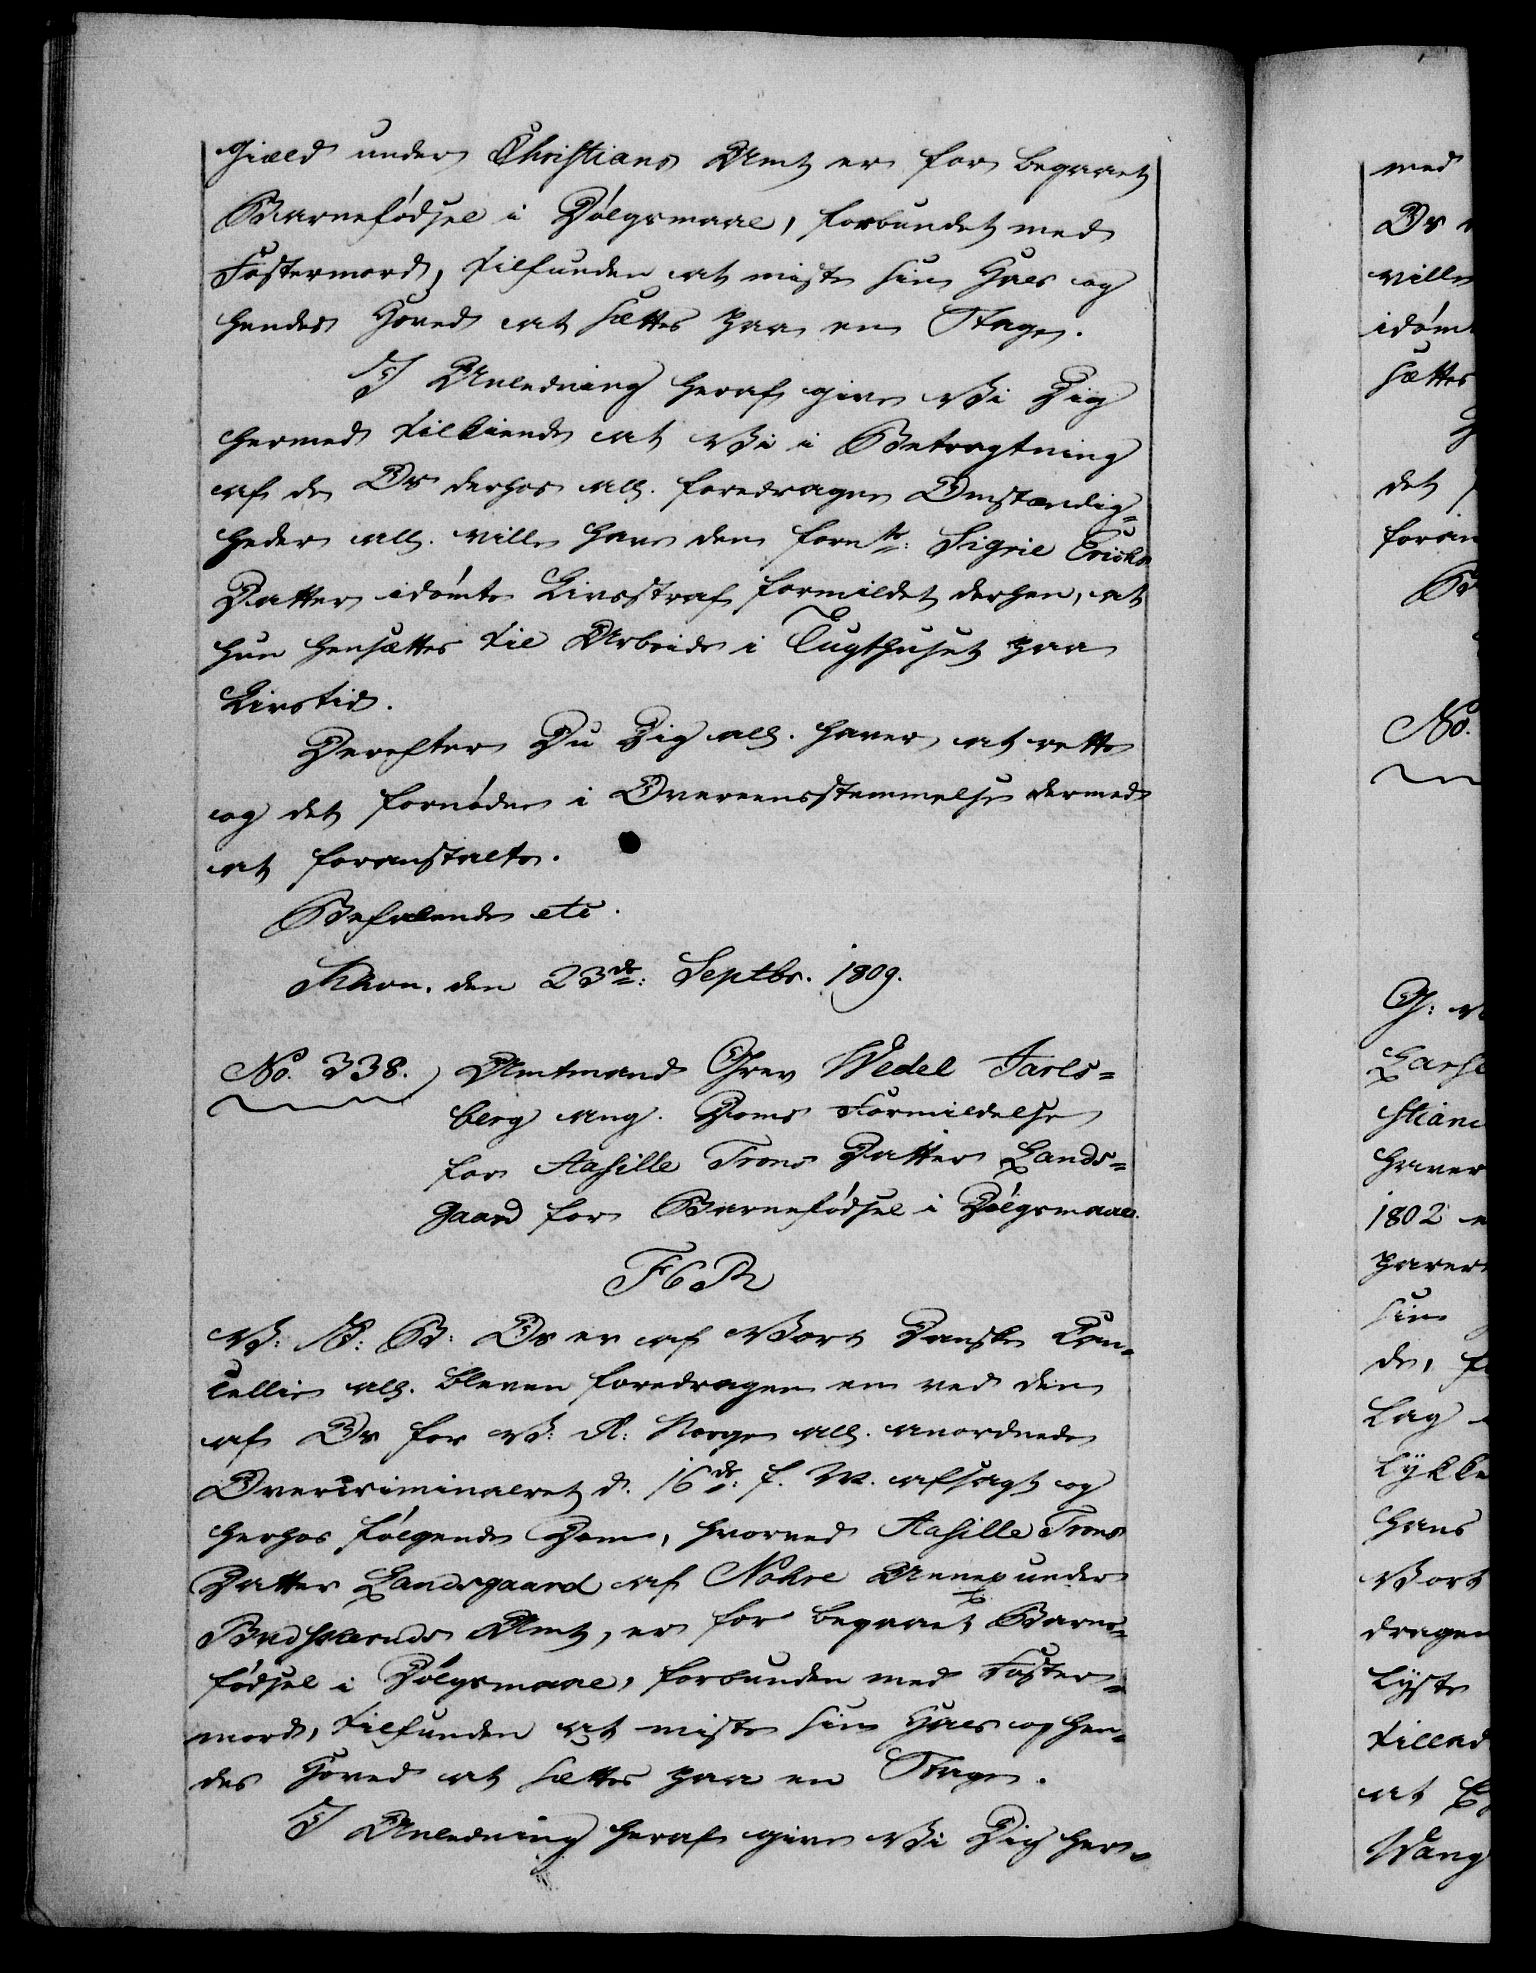 giæld under Christians Amt er for begaaet
Barnefødsel i Dølgsmaal, forbundet med
Fostermord, tilfunden at miste sin Hals og
hendes Hoved at sættes paa en Stage.
I Anledning heraf give Vi Dig
hermed tilkiende at Vi i Betragtning
af de Os derhos all. foredragne Omstændig-
heder all. ville have den forn te: Sigrie Erichs
Datter idømte Livsstraf formildet derhen, at
hun hensættes til Arbeide i Tugthuset paa
Livstid.
Derefter Du Dig all. haver at rette
og det fornødne i Overeensstemmelse dermed
at foranstalte.
Befalende etc.
Khvn. den 23de: Septbr. 1809.
No. 338. Amtmand Grev Wedel Jarls-
berg ang. Doms Formildelse
for Aasille Trons Datter Lands-
gaard for Barnefødsel i Dølgsmaal.
F6R
V: G: B: Os er af Vort Danske Can-
cellie all. bleven foredragen en ved den
af Os for V: R: Norge all. anordnede
Overcriminalret d. 16de: f. M. afsagt og
herhos følgende Dom, hvorved Aasille Trons
Datter Landsgaard af Nohre Annex under
Budsheruds Amt, er for begaaet Barne-
fødsel i Dølgsmaal, forbunden med Foster-
mord, tilfunden at miste sin Hals og hen-
des Hoved at sættes paa en Stage.
I Anledning heraf give Vi Dig her-
med
Os
ville
idømt
sættes
det
No.
1802
sin
de,
Lag
Lykke
hans
Vort
dragen
lyste
tillad
at
Vang